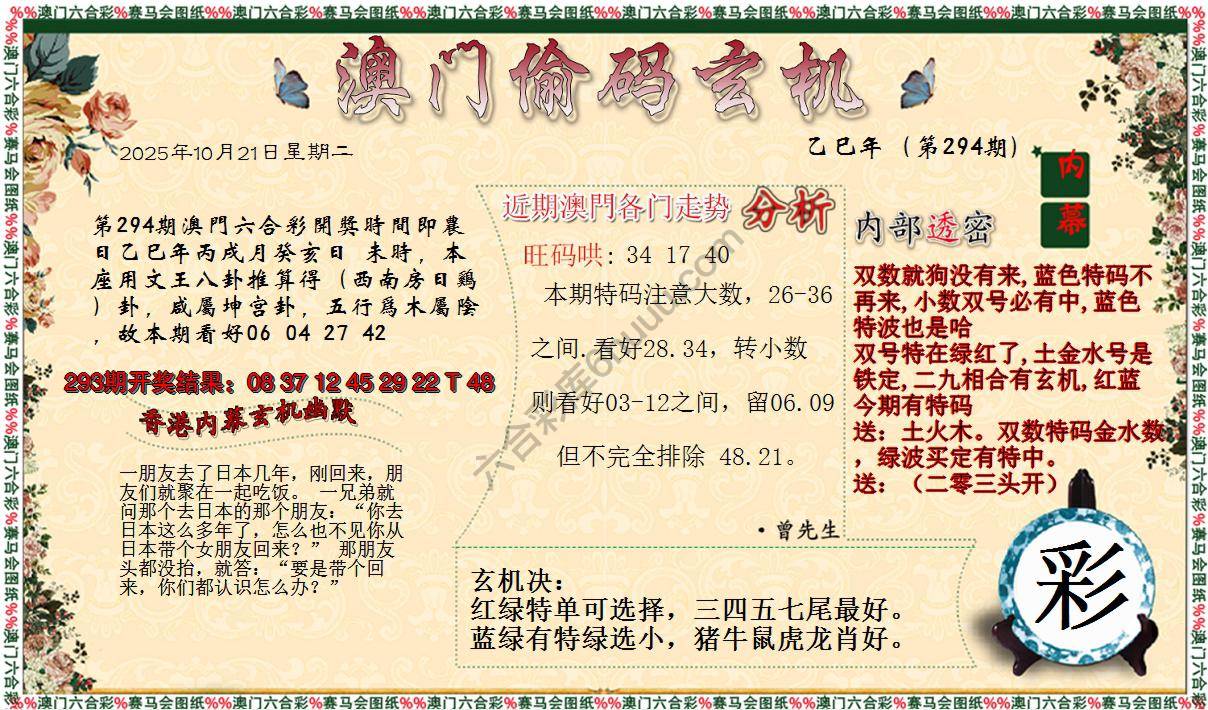 %%澳门六合彩%赛马会图纸%%澳门六合彩%赛马会图纸%%澳门六合彩%赛马会图纸%%澳门六合彩%赛马会图纸%%澳门六合彩%赛马会图纸%%澳门六合彩%赛马会图纸%%
澳门偷码玄机
2025年10月21日星期二
乙巳年（第294期）
内幕
第294期澳門六合彩開獎時間即農
日乙巳年丙戌月癸亥日 未時，本
座用文王八卦推算得（西南房日鷄
）卦，咸屬坤宫卦，五行爲木屬陰
，故本期看好06 04 27 42
293期开奖结果：08 37 12 45 29 22 T 48
香港内幕玄机幽默
一朋友去了日本几年，刚回来，朋
友们就聚在一起吃饭。 一兄弟就
问那个去日本的那个朋友：“你去
日本这么多年了，怎么也不见你从
日本带个女朋友回来？” 那朋友
头都没抬，就答：“要是带个回
来，你们都认识怎么办？”
近期澳門各门走势 分析
旺码哄: 34 17 40
本期特码注意大数，26-36
之间.看好28.34，转小数
则看好03-12之间，留06.09
但不完全排除 48.21。
·曾先生
内部透密
双数就狗没有来,蓝色特码不
再来,小数双号必有中,蓝色
特波也是哈
双号特在绿红了,土金水号是
铁定,二九相合有玄机,红蓝
今期有特码
送：土火木。双数特码金水数
，绿波买定有特中。
送：（二零三头开）
玄机决：
红绿特单可选择，三四五七尾最好。
蓝绿有特绿选小，猪牛鼠虎龙肖好。
彩
六合彩库6huuu.com
%%澳门六合彩%赛马会图纸%%澳门六合彩%赛马会图纸%%澳门六合彩%赛马会图纸%%澳门六合彩%赛马会图纸%%澳门六合彩%赛马会图纸%%澳门六合彩%赛马会图纸%%